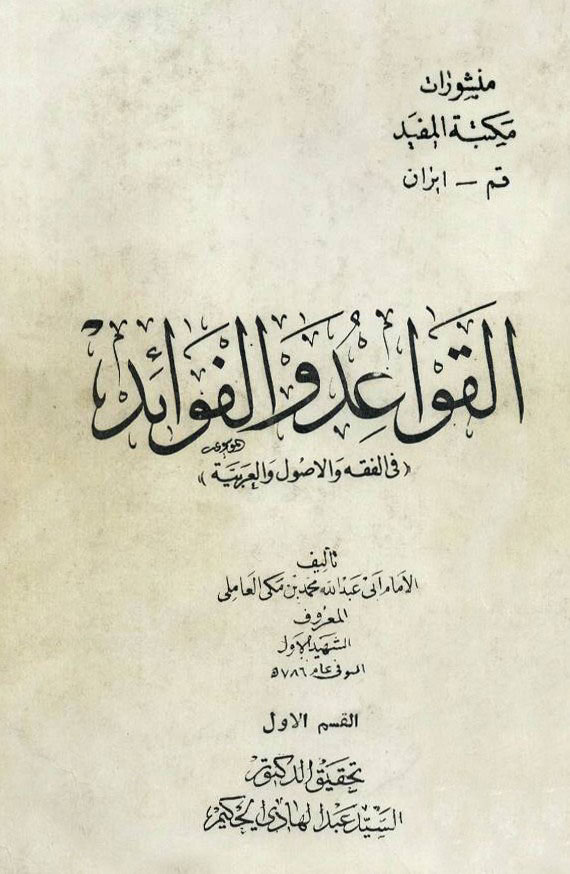 منشورات
مكتبة المفيد
قم - ايران
القَوَاعِدُ وَالفَوَائِد
(في الفقه والاصول والعربيّة)
تأليف
الامام ابي عبدالله محمد بن مكي العاملي
المعروف
الشهيد الاول
المتوفى عام ٧٨٦ ه
القسم الاول
تحقيق الدكتور
السيّد عبد الهادي الحكيم